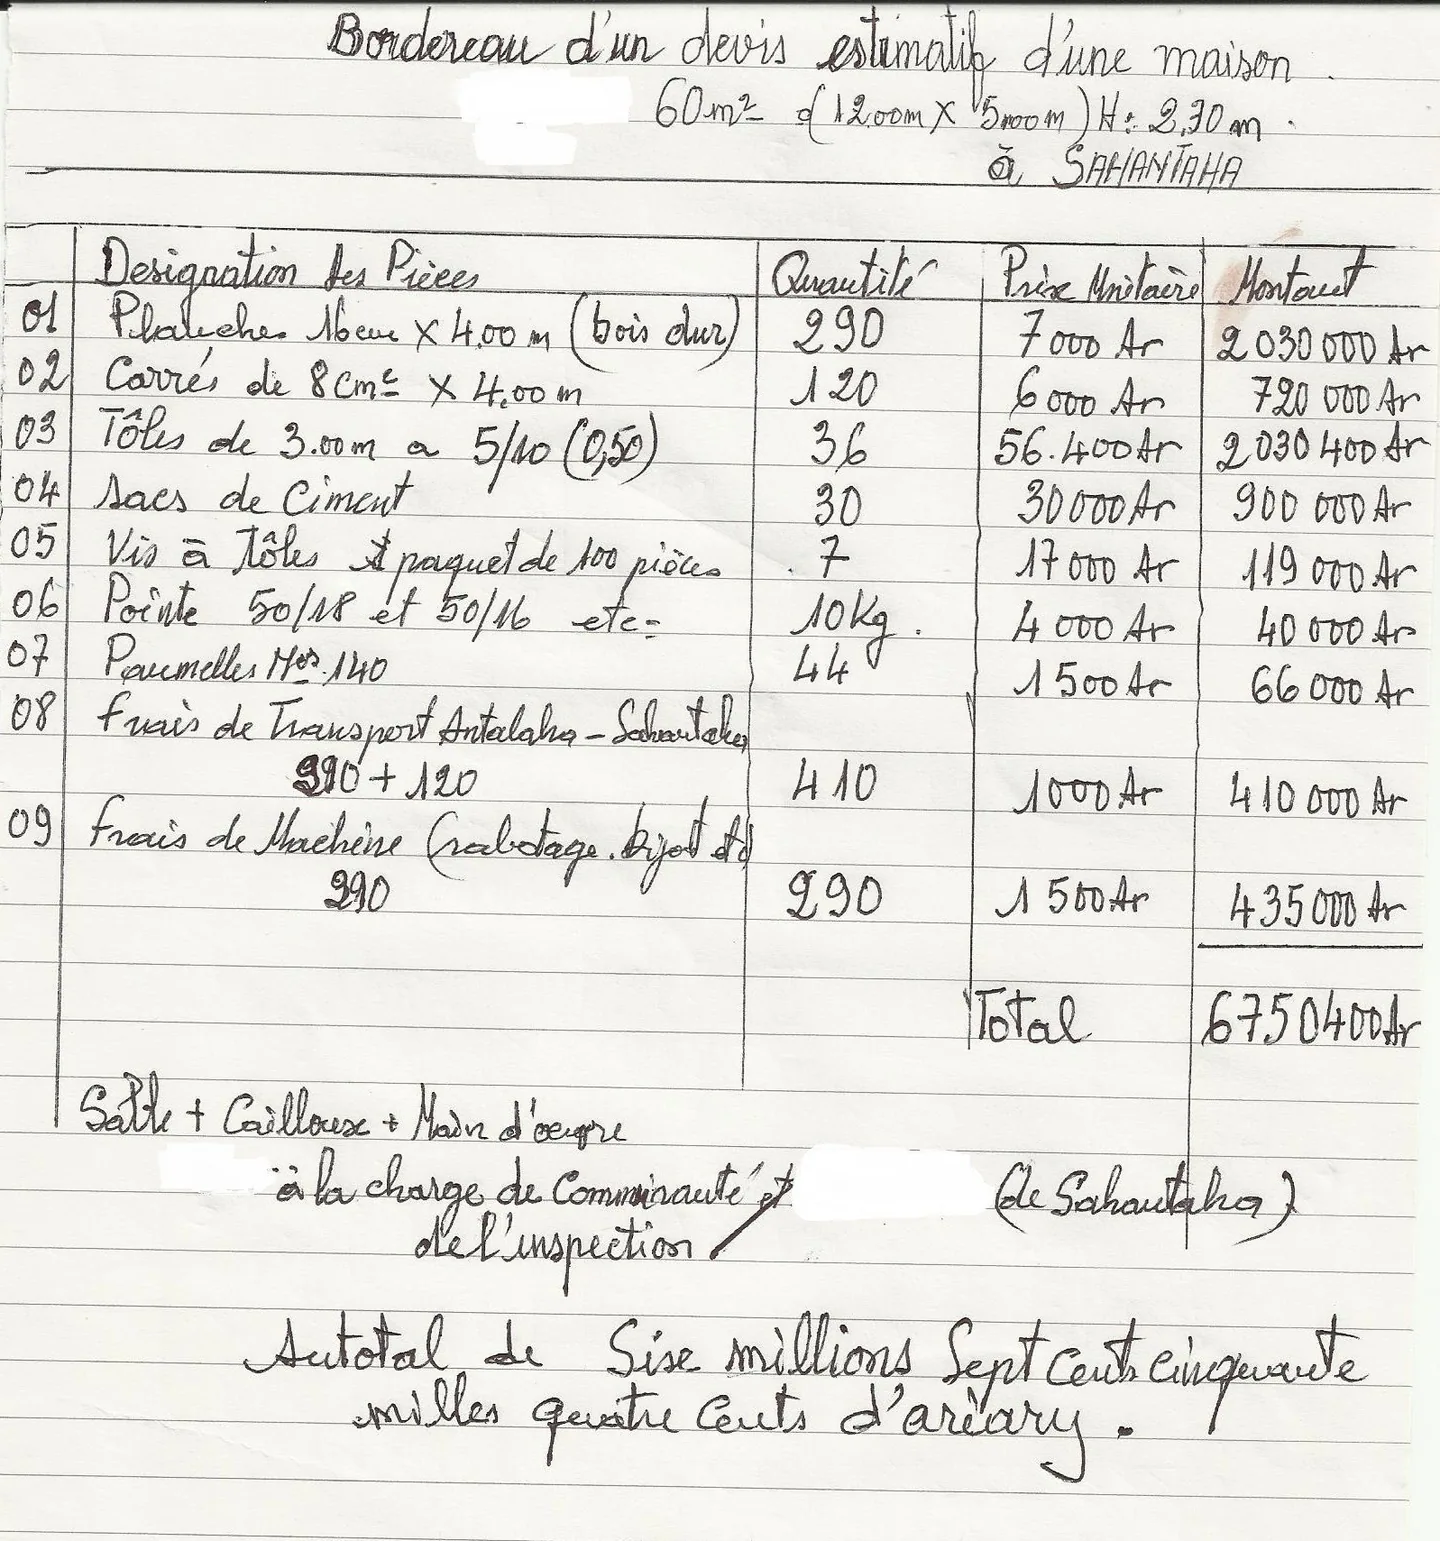 Bordereau d'un devis estimatif d'une maison.
60m² (12.00m X 5.00m) H: 2,30m.
à SAHANTAHA
Designation des Pièces Quantité Prix Unitaire Montant
01 Planches 16cm X 4.00m (bois dur) 290 7000 Ar 2 030 000 Ar
02 Carrés de 8cm² X 4.00m 120 6000 Ar 720 000 Ar
03 Tôles de 3.00m a 5/10 (0,50) 36 56.400 Ar 2 030 400 Ar
04 Sacs de Ciment 30 30 000 Ar 900 000 Ar
05 Vis à Tôles paquet de 100 pièces 7 17 000 Ar 119 000 Ar
06 Pointe 50/18 et 50/16 etc= 10Kg. 4 000 Ar 40 000 Ar
07 Paumelles Nos 140 44 1 500 Ar 66 000 Ar
08 frais de Transport Antalaha - Sahantaha
290 + 120 410 1000 Ar 410 000 Ar
09 frais de Machine (rabotage.
290 290 1 500 Ar 435 000 Ar
Total 6750400 Ar
Sable + Cailloux + Main d'oeuvre
à la charge de Communauté et (de Sahantaha)
de l'inspection
Autotal de Sixe millions Sept cents cinquante
milles quatre cents d'ariary.